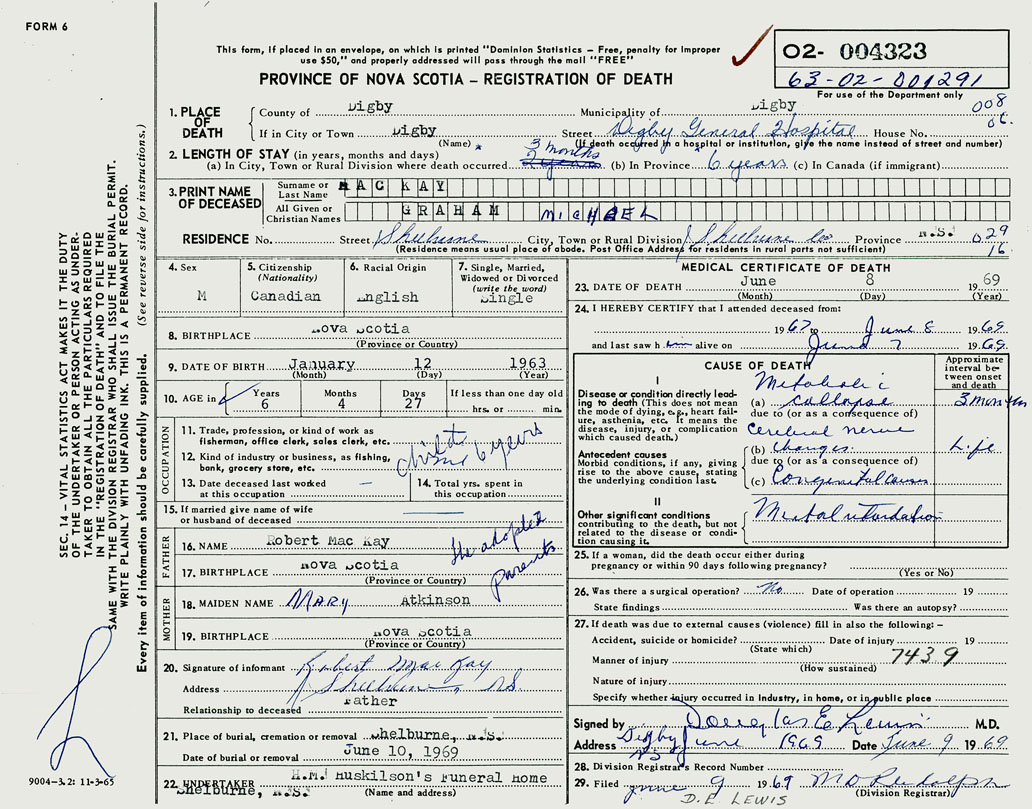 FORM 6
This form, if placed in an envelope, on which is printed "Dominion Statistics – Free, penalty for improper
use $50," and properly addressed will pass through the mail "FREE"
PROVINCE OF NOVA SCOTIA – REGISTRATION OF DEATH
02- 004323
63-02-001291
For use of the Department only
008
06.
1. PLACE OF DEATH
County of Digby Municipality of Digby
If in City or Town Digby Street Digby General Hospital House No.
(Name) (If death occurred in a hospital or institution, give the name instead of street and number)
2. LENGTH OF STAY (in years, months and days)
3 months
(a) In City, Town or Rural Division where death occurred (b) In Province 6 years (c) In Canada (if immigrant)
3. PRINT NAME OF DECEASED
Surname or Last Name MAC KAY
All Given or Christian Names GRAHAM MICHAEL
RESIDENCE No. Street Shelburne City, Town or Rural Division Shelburne Co. Province N.S.
(Residence means usual place of abode. Post Office Address for residents in rural parts not sufficient)
029
16
4. Sex M
5. Citizenship (Nationality) Canadian
6. Racial Origin English
7. Single, Married, Widowed or Divorced (write the word) Single
8. BIRTHPLACE Nova Scotia
(Province or Country)
9. DATE OF BIRTH January 12 1963
(Month) (Day) (Year)
10. AGE in Years 6 Months 4 Days 27 If less than one day old hrs. or min.
OCCUPATION
11. Trade, profession, or kind of work as
fisherman, office clerk, sales clerk, etc.
12. Kind of industry or business, as fishing,
bank, grocery store, etc.
child
6 years
13. Date deceased last worked
at this occupation –
14. Total yrs. spent in
this occupation
15. If married give name of wife
or husband of deceased
FATHER
16. NAME Robert Mac Kay
17. BIRTHPLACE Nova Scotia
(Province or Country)
the adopted
parents
MOTHER
18. MAIDEN NAME MARY Atkinson
19. BIRTHPLACE Nova Scotia
(Province or Country)
20. Signature of informant Robert Mac Kay
Address Shelburne, NS.
Relationship to deceased Father
21. Place of burial, cremation or removal Shelburne, N.S.
Date of burial or removal June 10, 1969
22. UNDERTAKER H.M. Huskilson's Funeral Home
Shelburne, N.S. (Name and address)
MEDICAL CERTIFICATE OF DEATH
23. DATE OF DEATH June 8 1969
(Month) (Day) (Year)
24. I HEREBY CERTIFY that I attended deceased from:
1967 to June 8 1969
and last saw him alive on June 7 1969
CAUSE OF DEATH
Approximate interval between onset and death
I
Disease or condition directly leading to death (This does not mean the mode of dying, e.g., heart failure, asthenia, etc. It means the disease, injury, or complication which caused death.)
Metabolic
(a) collapse 3 months
due to (or as a consequence of)
cerebral nerve
Antecedent causes
Morbid conditions, if any, giving rise to the above cause, stating the underlying condition last.
(b) changes Life
due to (or as a consequence of)
(c) Congenital causes
II
Other significant conditions contributing to the death, but not related to the disease or condition causing it.
Mental retardation
25. If a woman, did the death occur either during
pregnancy or within 90 days following pregnancy?
(Yes or No)
26. Was there a surgical operation? No Date of operation 19
State findings Was there an autopsy?
27. If death was due to external causes (violence) fill in also the following: –
Accident, suicide or homicide? Date of injury 19
(State which)
Manner of injury 7439
(How sustained)
Nature of injury
Specify whether injury occurred in Industry, in home, or in public place
Signed by Douglas E Lewis M.D.
Address Digby June 1969 Date June 9 1969
NS
28. Division Registrar's Record Number
29. Filed June 9 1969 M D Rudolph
(Division Registrar)
D.E. LEWIS
SEC. 14 – VITAL STATISTICS ACT MAKES IT THE DUTY
OF THE UNDERTAKER OR PERSON ACTING AS UNDER-
TAKER TO OBTAIN ALL THE PARTICULARS REQUIRED
IN THE "REGISTRATION OF DEATH" AND TO FILE THE
SAME WITH THE DIVISION REGISTRAR WHO SHALL ISSUE THE BURIAL PERMIT.
WRITE PLAINLY WITH UNFADING INK. THIS IS A PERMANENT RECORD.
Every item of information should be carefully supplied. (See reverse side for instructions.)
9004-3.2: 11-3-65